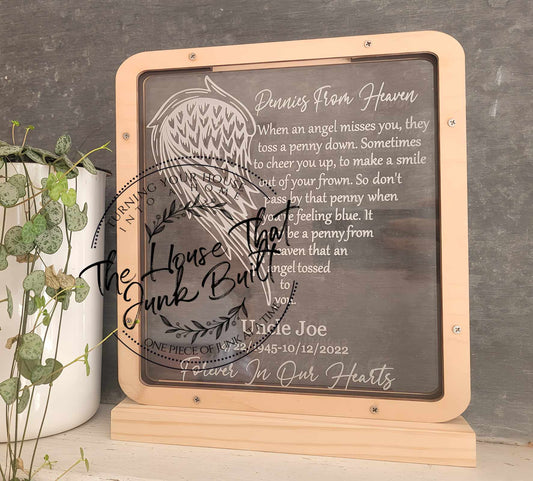 Pennies From Heaven
When an angel misses you, they
toss a penny down. Sometimes
to cheer you up, to make a smile
out of your frown. So don't
pass by that penny when
you're feeling blue. It
be a penny from
heaven that an
angel tossed
to
you.
Uncle Joe
22/1945-10/12/2022
Forever In Our Hearts
TURNING YOUR HOUSE
INTO
The House That
Junk Built
ONE PIECE OF JUNK AT A TIME